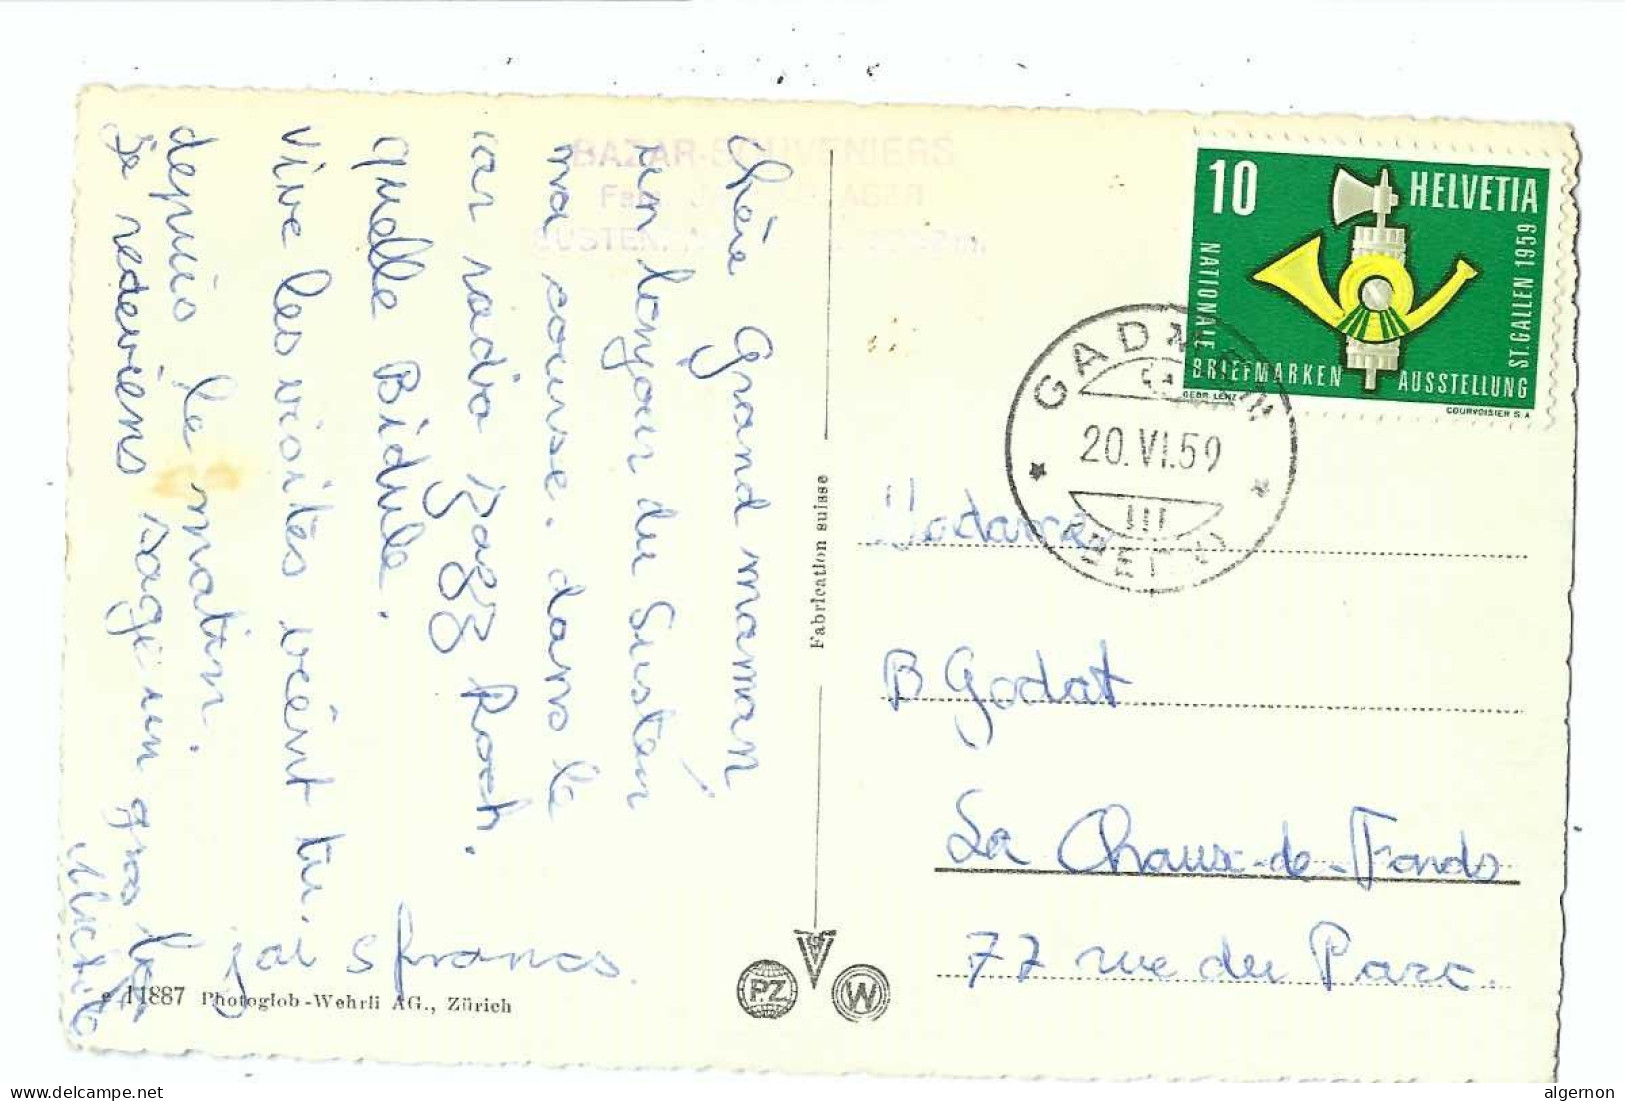 BAZAR-SOUVENIERS
Fam.
Chère Grand maman
un bonjour du Susten
ma course. dans le
car radio Zagg Roch.
quelle Bidule.
vive les visites
depuis le matin.
Je redeviens sage un gros
j'ai 5 francs.
e 11887 Photoglob-Wehrli AG., Zürich
Fabrication suisse
PZ
W
10 HELVETIA
NATIONALE BRIEFMARKEN AUSSTELLUNG ST.GALLEN 1959
GEBR. LENZ
COURVOISIER S.A.
GADMEN
20.VI.59
(BERN)
Madame
B Godat
La Chaux-de-Fonds
77 rue du Parc.
delcampe.net
algernon